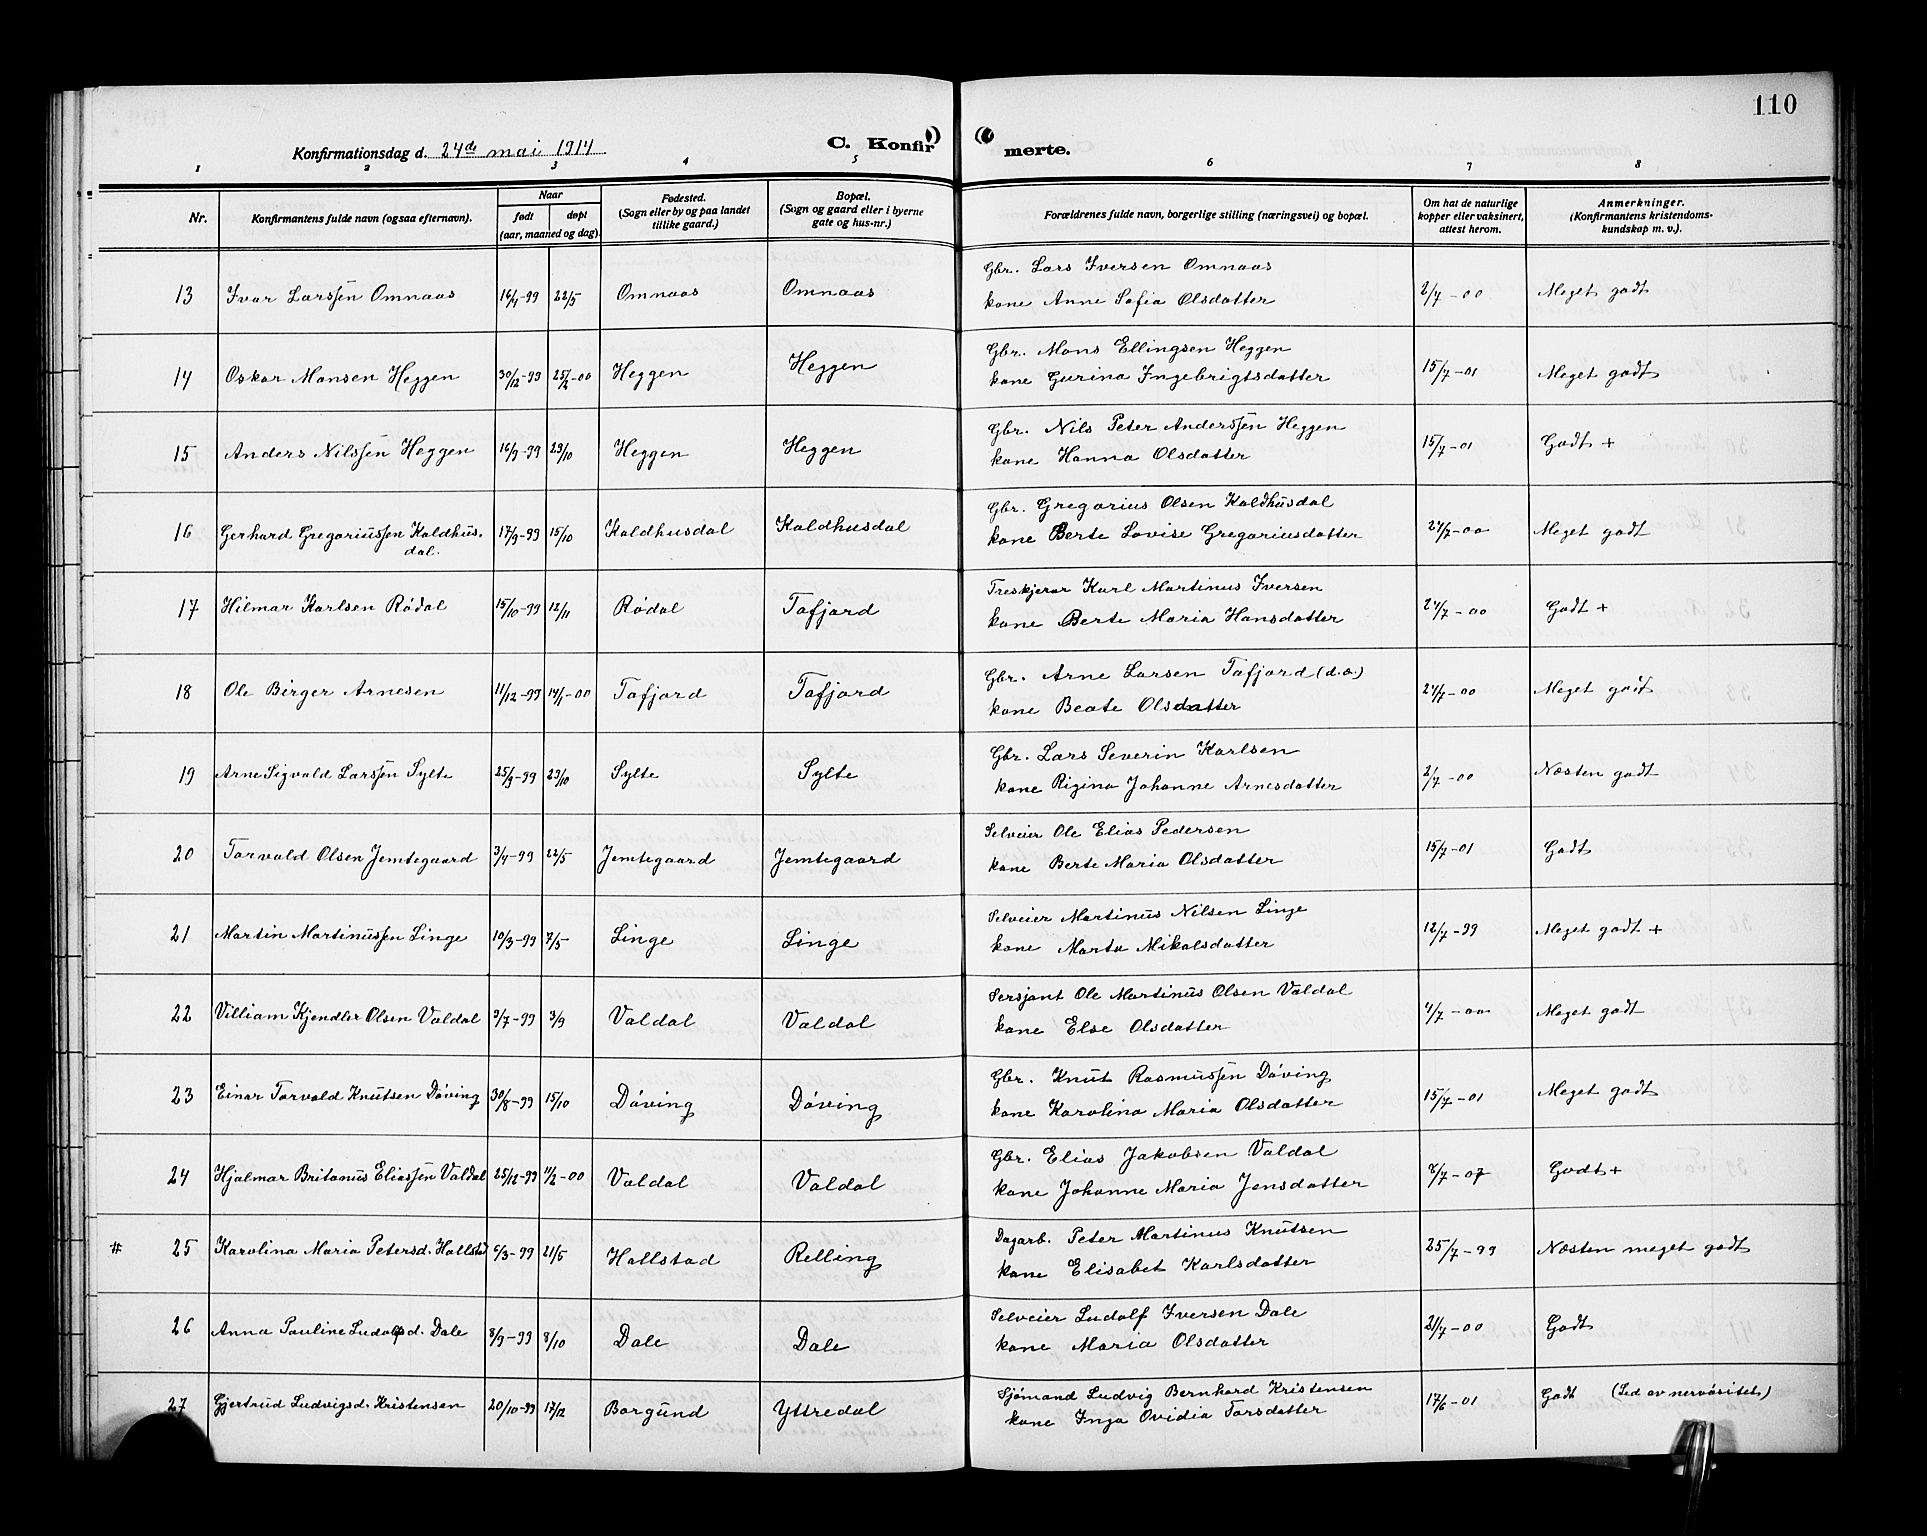 110
Konfirmationsdag d. 24de mai 1914
C. Konfirmerte.
1 2 3 4 5 6 7 8
Nr. | Konfirmantens fulde navn (ogsaa efternavn). | Naar født døpt (aar, maaned og dag). | Fødested. (Sogn eller by og paa landet tillike gaard.) | Bopæl. (Sogn og gaard eller i byerne gate og hus-nr.) | Forældrenes fulde navn, borgerlige stilling (næringsvei) og bopæl. | Om hat de naturlige kopper eller vaksinert, attest herom. | Anmerkninger. (Konfirmantens kristendomskundskap m. v.).
13 Ivar Larssen Omnaas 16/4-99 22/5 Omnaas Omnaas Gbr. Lars Iversen Omnaas
kone Anne Sofia Olsdatter 2/7-00 Meget godt
14 Oskar Monsen Heggen 30/12-99 25/2-00 Heggen Heggen Gbr. Mons Ellingsen Heggen
kone Gurina Ingebrigtsdatter 15/7-01 Meget godt
15 Anders Nilssen Heggen 16/9-99 29/10 Heggen Heggen Gbr. Nils Peter Anderssen Heggen
kone Hanna Olsdatter 15/7-01 Godt +
16 Gerhard Gregoriussen Kaldhus-
dal. 17/9-99 15/10 Kaldhusdal Kaldhusdal Gbr. Gregorius Olsen Kaldhusdal
kone Berte Lovise Gregoriusdatter 24/7-00 Meget godt
17 Hilmar Karlsen Rødal 15/10-99 12/11 Rødal Tafjord Treskjerar Karl Martinus Iversen
kone Berte Maria Hansdatter 24/7-00 Godt +
18 Ole Birger Arnesen 11/12-99 14/1-00 Tafjord Tafjord Gbr. Arne Larsen Tafjord (d.o.)
kone Beate Olsdatter 24/7-00 Meget godt
19 Arne Sigvald Larssen Sylte 25/9-99 29/10 Sylte Sylte Gbr. Lars Severin Karlsen
kone Rigina Johanne Arnesdatter 2/7-00 Næsten godt
20 Torvald Olsen Jemtegaard 3/4-99 22/5 Jemtegaard Jemtegaard Selveier Ole Elias Pedersen
kone Berte Maria Olsdatter 15/7-01 Godt
21 Martin Martinussen Linge 10/3-99 7/5 Linge Linge Selveier Martinus Nilsen Linge
kone Marta Mikalsdatter 12/7-99 Meget godt +
22 Villiam Kjendler Olsen Valdal 9/7-99 3/9 Valdal Valdal Sersjant Ole Martinus Olsen Valdal
kone Else Olsdatter 4/7-00 Meget godt
23 Einar Torvald Knutsen Døving 30/8-99 15/10 Døving Døving Gbr. Knut Rasmussen Døving
kone Karolina Maria Olsdatter 15/7-01 Meget godt
24 Hjalmar Britanus Eliassen Valdal 25/12-99 11/2-00 Valdal Valdal Gbr. Elias Jakobsen Valdal
kone Johanne Maria Jensdatter 8/7-07 Godt +
# 25 Karolina Maria Petersd. Hallstad 6/3-99 21/5 Hallstad Relling Dagarb. Peter Martinus Knutsen
kone Elisabet Karlsdatter 25/7-99 Næsten meget godt
26 Anna Pauline Ludolfd. Dale 8/9-99 8/10 Dale Dale Selveier Ludolf Iversen Dale
kone Maria Olsdatter 21/7-00 Godt
27 Gjertrud Ludvigsd. Kristensen 20/10-99 17/12 Borgund Yttredal Sjømand Ludvig Bernhard Kristensen
kone Inga Ovidia Torsdatter 17/6-01 Godt (Led av nervøsitet)